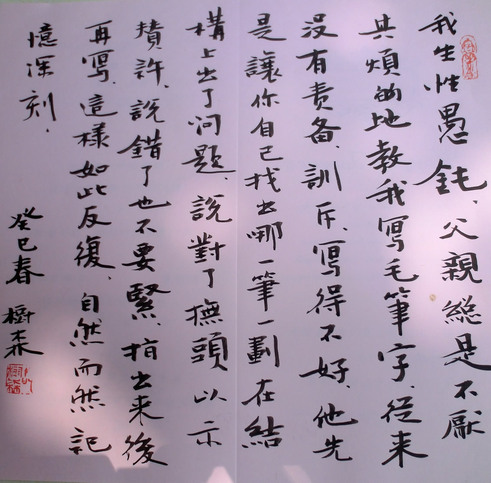 我生性愚鈍、父親總是不厭
其煩的地教我寫毛筆字、從来
没有责备、訓斥、寫得不好、他先
是讓你自己找出哪一筆一劃在結
構上出了问题、説對了撫頭以示
横許、説錯了也不要緊、指出来、後
再寫、這樣如此反復、自然而然記
憶深刻.
癸巳春 樹森